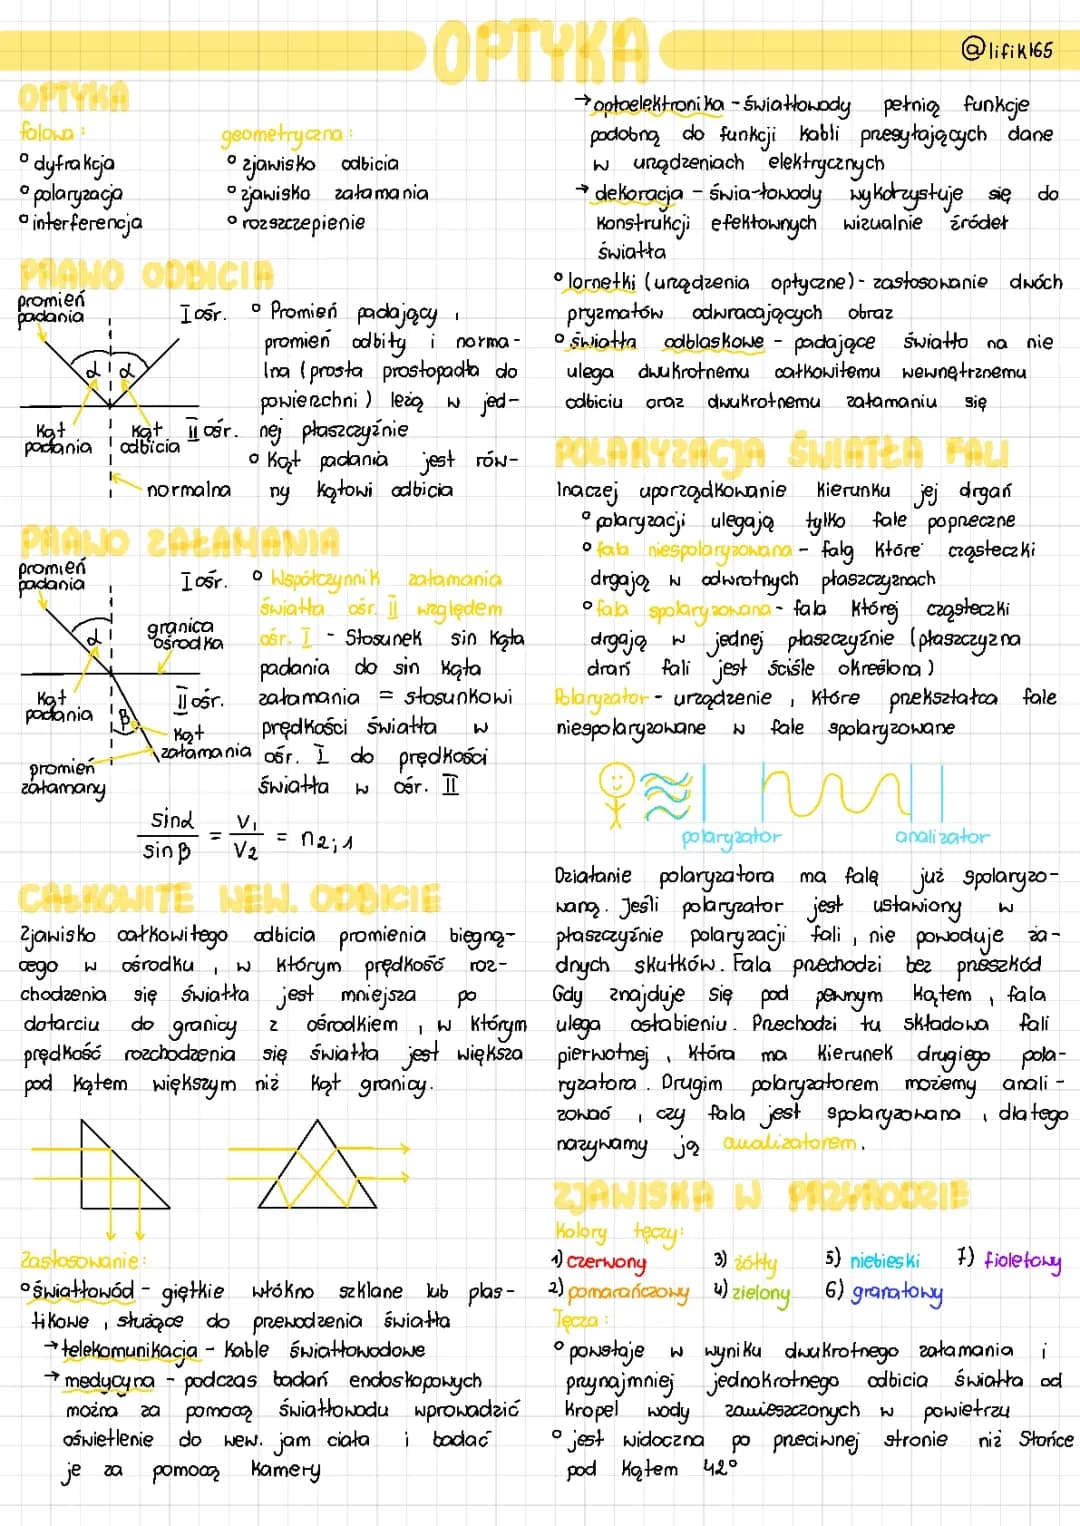 OPTYKA
@lifik165
OPTYKA
falowa:
° dyfrakcja
° polaryzacja
° interferencja
geometryczna:
° zjawisko odbicia
° zjawisko załamania
° rozszczepienie
PRAWO ODBICIA
promień
padania
I ośr.
α α
kąt
padania
kąt
odbicia
II ośr.
normalna
° Promień padający,
promień odbity i norma-
lna (prosta prostopadła do
powierzchni) leżą w jed-
nej płaszczyźnie
° kąt padania jest rów-
ny kątowi odbicia
PRAWO ZAŁAMANIA
promień
padania
I ośr.
α
granica
ośrodka
kąt
padania
II ośr.
β
kąt
załamania
promień
załamany
° Współczynnik załamania
światła ośr. II względem
ośr. I - Stosunek sin kąta
padania do sin kąta
załamania = stosunkowi
prędkości światła w
ośr. I do prędkości
światła w ośr. II
sinα / sinβ = V₁ / V₂ = n₂;₁
CAŁKOWITE WEW. ODBICIE
Zjawisko całkowitego odbicia promienia biegną-
cego w ośrodku, w którym prędkość roz-
chodzenia się światła jest mniejsza po
dotarciu do granicy z ośrodkiem, w którym
prędkość rozchodzenia się światła jest większa
pod kątem większym niż kąt granicy.
Zastosowanie:
° światłowód - giętkie włókno szklane lub plas-
tikowe, służące do przewodzenia światła
→ telekomunikacja - kable światłowodowe
→ medycyna - podczas badań endoskopowych
można za pomocą światłowodu wprowadzić
oświetlenie do wew. jam ciała i badać
je za pomocą kamery
→ optoelektronika - światłowody pełnią funkcje
podobną do funkcji kabli przesyłających dane
w urządzeniach elektrycznych
→ dekoracja - świa-łowody wykorzystuje się do
konstrukcji efektownych wizualnie źródeł
światła
° lornetki (urządzenia optyczne) - zastosowanie dwóch
pryzmatów odwracających obraz
° światła odblaskowe - padające światło na nie
ulega dwukrotnemu całkowitemu wewnętrznemu
odbiciu oraz dwukrotnemu załamaniu się
POLARYZACJA ŚWIATŁA FALI
Inaczej uporządkowanie kierunku jej drgań
° polaryzacji ulegają tylko fale poprzeczne
° fala niespolaryzowana - falg które cząsteczki
drgają w odwrotnych płaszczyznach
° fala spolaryzowana - fala której cząsteczki
drgają w jednej płaszczyźnie (płaszczyzna
drań fali jest ściśle określona)
Polaryzator - urządzenie, które przekształca fale
niespolaryzowane w fale spolaryzowane
polaryzator
analizator
Działanie polaryzatora ma falę już spolaryzo-
waną. Jeśli polaryzator jest ustawiony w
płaszczyźnie polaryzacji fali, nie powoduje ża-
dnych skutków. Fala przechodzi bez przeszkód
Gdy znajduje się pod pewnym kątem, fala
ulega osłabieniu. Przechodzi tu składowa fali
pierwotnej, która ma kierunek drugiego pola-
ryzatora. Drugim polaryzatorem możemy anali-
zować, czy fala jest spolaryzowana, dlatego
nazywamy ją analizatorem.
ZJAWISKA W PRZYRODZIE
Kolory tęczy:
1) czerwony
3) żółty
5) niebieski
7) fioletowy
2) pomarańczowy
4) zielony
6) granatowy
Tęcza:
° powstaje w wyniku dwukrotnego załamania i
przynajmniej jednokrotnego odbicia światła od
kropel wody zawieszczonych w powietrzu
° jest widoczna po przeciwnej stronie niż Słońce
pod kątem 42°